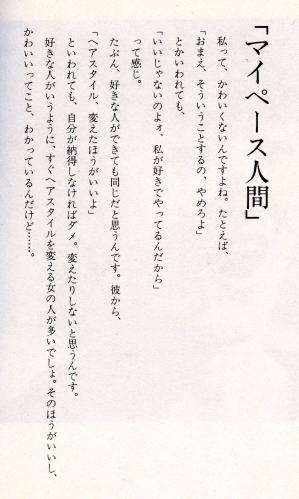 「マイペース人間」
私って、かわいくないんですよね。たとえば、
「おまえ、そういうことするの、やめろよ」
とかいわれても、
「いいじゃないのよォ、私が好きでやってるんだから」
って感じ。
たぶん、好きな人ができても同じだと思うんです。彼から、
「ヘアスタイル、変えたほうがいいよ」
といわれても、自分が納得しなければダメ。変えたりしないと思うんです。
好きな人がいうように、すぐヘアスタイルを変える女の人が多いでしょ。そのほうがいいし、
かわいいってこと、わかっているんだけど……。